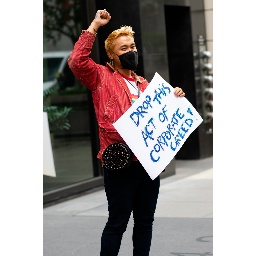 DROP THIS
ACT OF
CORPORATE
GREED!